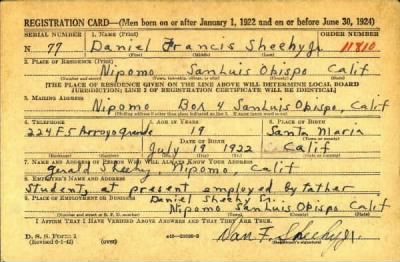 REGISTRATION CARD—(Men born on or after January 1, 1922 and on or before June 30, 1924)
SERIAL NUMBER 1. NAME (Print) ORDER NUMBER
N 77 Daniel Francis Sheehy Jr 11810
(First) (Middle) (Last)
2. PLACE OF RESIDENCE (Print)
Nipomo San Luis Obispo Calif
(Number and street) (Town, township, village, or city) (County) (State)
[THE PLACE OF RESIDENCE GIVEN ON THE LINE ABOVE WILL DETERMINE LOCAL BOARD
JURISDICTION; LINE 2 OF REGISTRATION CERTIFICATE WILL BE IDENTICAL]
3. MAILING ADDRESS
Nipomo Box 4 San Luis Obispo, Calif
4. TELEPHONE 5. AGE IN YEARS 6. PLACE OF BIRTH
224 F5 Arroyo Grande 19 Santa Maria
DATE OF BIRTH
July 19 1922 Calif
7. NAME AND ADDRESS OF PERSON WHO WILL ALWAYS KNOW YOUR ADDRESS
Gerald Sheehy, Nipomo, Calif
8. EMPLOYER'S NAME AND ADDRESS
Student, at present employed by father
Daniel Sheehy Sr.
9. PLACE OF EMPLOYMENT OR BUSINESS
Nipomo San Luis Obispo Calif
I AFFIRM THAT I HAVE VERIFIED ABOVE ANSWERS AND THAT THEY ARE TRUE.
D. S. S. Form 1
(Revised 6-1-42) (over)
Dan F. Sheehy Jr.